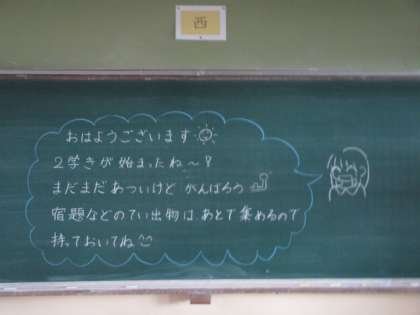 西
おはようございます
2学きが始まったね〜!
まだまだあついけど がんばろう
宿題などのてい出物は、あとで集めるので
持っておいてね